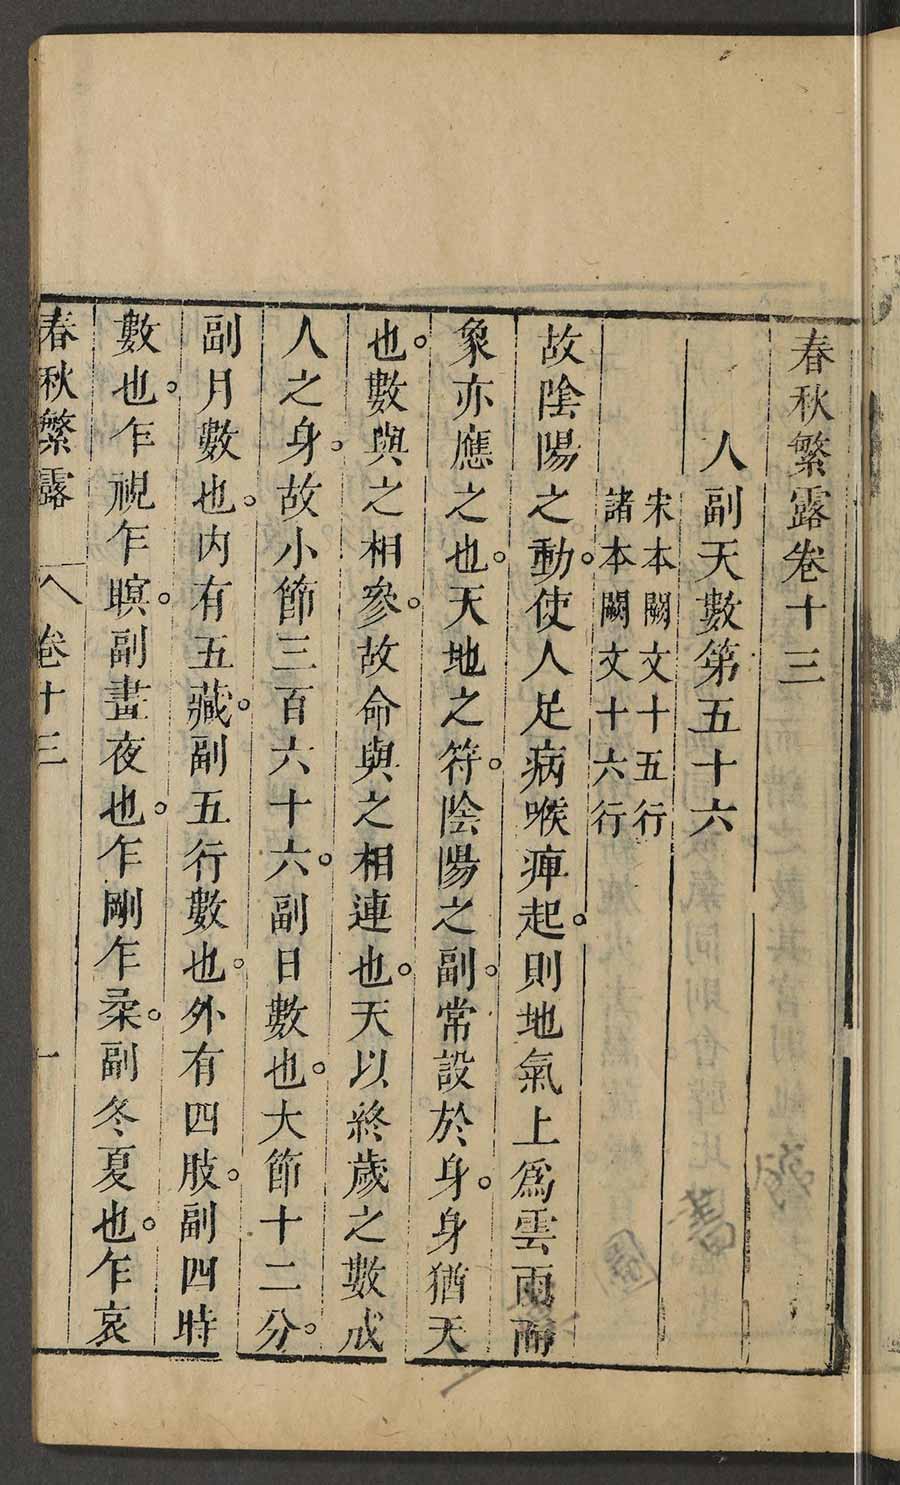 春秋繁露卷十三
人副天數第五十六
宋本闕文十五行
諸本闕文十六行
故陰陽之動。使人足病喉痺起。則地氣上爲雲雨而
象亦應之也。天地之符。陰陽之副。常設於身。身猶天
也。數與之相參。故命與之相連也。天以終歲之數成
人之身。故小節三百六十六。副日數也。大節十二分。
副月數也。内有五藏。副五行數也。外有四肢。副四時
數也。乍視乍瞑。副晝夜也。乍剛乍柔。副冬夏也。乍哀
春秋繁露
卷十三
一